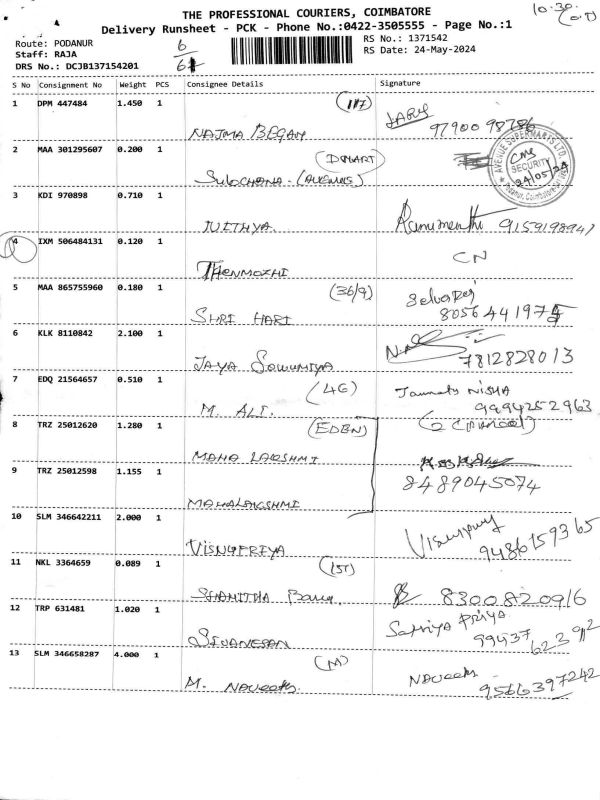 THE PROFESSIONAL COURIERS, COIMBATORE
10.30
Delivery Runsheet - PCK - Phone No.:0422-3505555 - Page No.:1
Route: PODANUR
Staff: RAJA
DRS No.: DCJB137154201
6
RS No.: 1371542
RS Date: 24-May-2024
S No Consignment No Weight PCS Consignee Details Signature
1 DPM 447484 1.450 1 (117)
NAJMA BEGAM 9790098786
2 MAA 301295607 0.200 1 (DMART)
SULOCHANA - AVENUE SUPERMARTS LTD. CMS SECURITY 24/05/24 Podanur, Coimbatore
3 KDI 970898 0.710 1
NITHYA 9159198947
4 IXM 506484131 0.120 1 CN
THENMOZHI
5 MAA 865755960 0.180 1 (36/9) Selvaraj
SHRI HARI 8056441975
6 KLK 8110842 2.100 1
JAYA SOWMIYA 7812828013
7 EDQ 21564657 0.510 1 (4G) NISHA
M. ALI. 9994252963
8 TRZ 25012620 1.280 1 (EDEN)
MAHA LAKSHMI
9 TRZ 25012598 1.155 1 8489045074
MAHALAKSHMI
10 SLM 346642211 2.000 1
VISNUPRIYA 9486159365
11 NKL 3364659 0.089 1 (1ST)
SHAHITHA Banu 8300820916
12 TRP 631481 1.020 1 Sathiya Priya
SIVANESAN 9943762392
13 SLM 346658287 4.000 1 (M)
M. NAVEETH. NAVEETH 9566397242